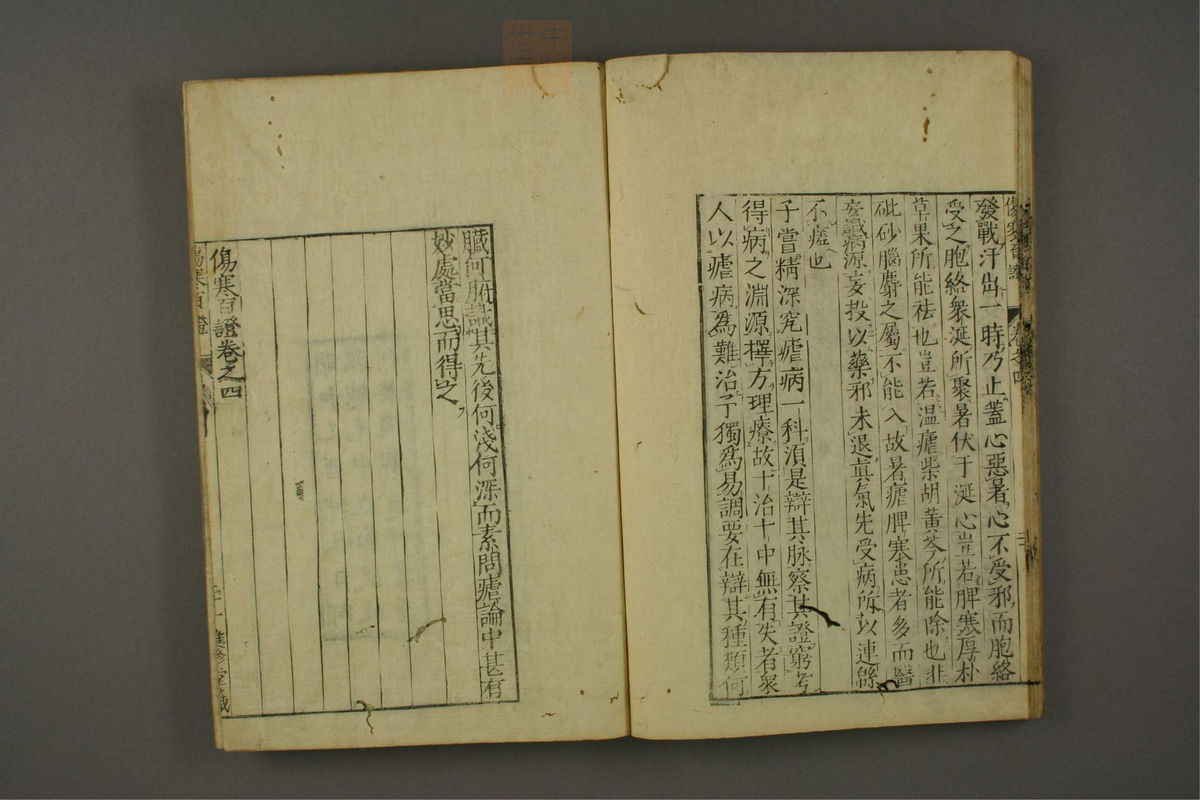 發戰汗出一時乃止蓋心惡暑心不受邪而胞絡
受之胞絡衆涎所聚暑伏于涎心豈若脾寒厚朴
草果所能祛也豈若溫瘧柴胡黃芩所能除也非
砒砂腦麝之屬不能入故暑瘧脾寒患者多而醫
病源妄投以藥邪未退眞氣先受病所以連緜
不瘥也
予嘗精深究瘧病一科須是辯其脉察其證窮考
得病之淵源擇方理療故十治十中無有失者衆
人以瘧病爲難治予獨爲易調要在辯其種類何
臟何腑識其先後何淺何深而素問瘧論中甚有
妙處當思而得之
傷寒百證卷之四
傷寒百證